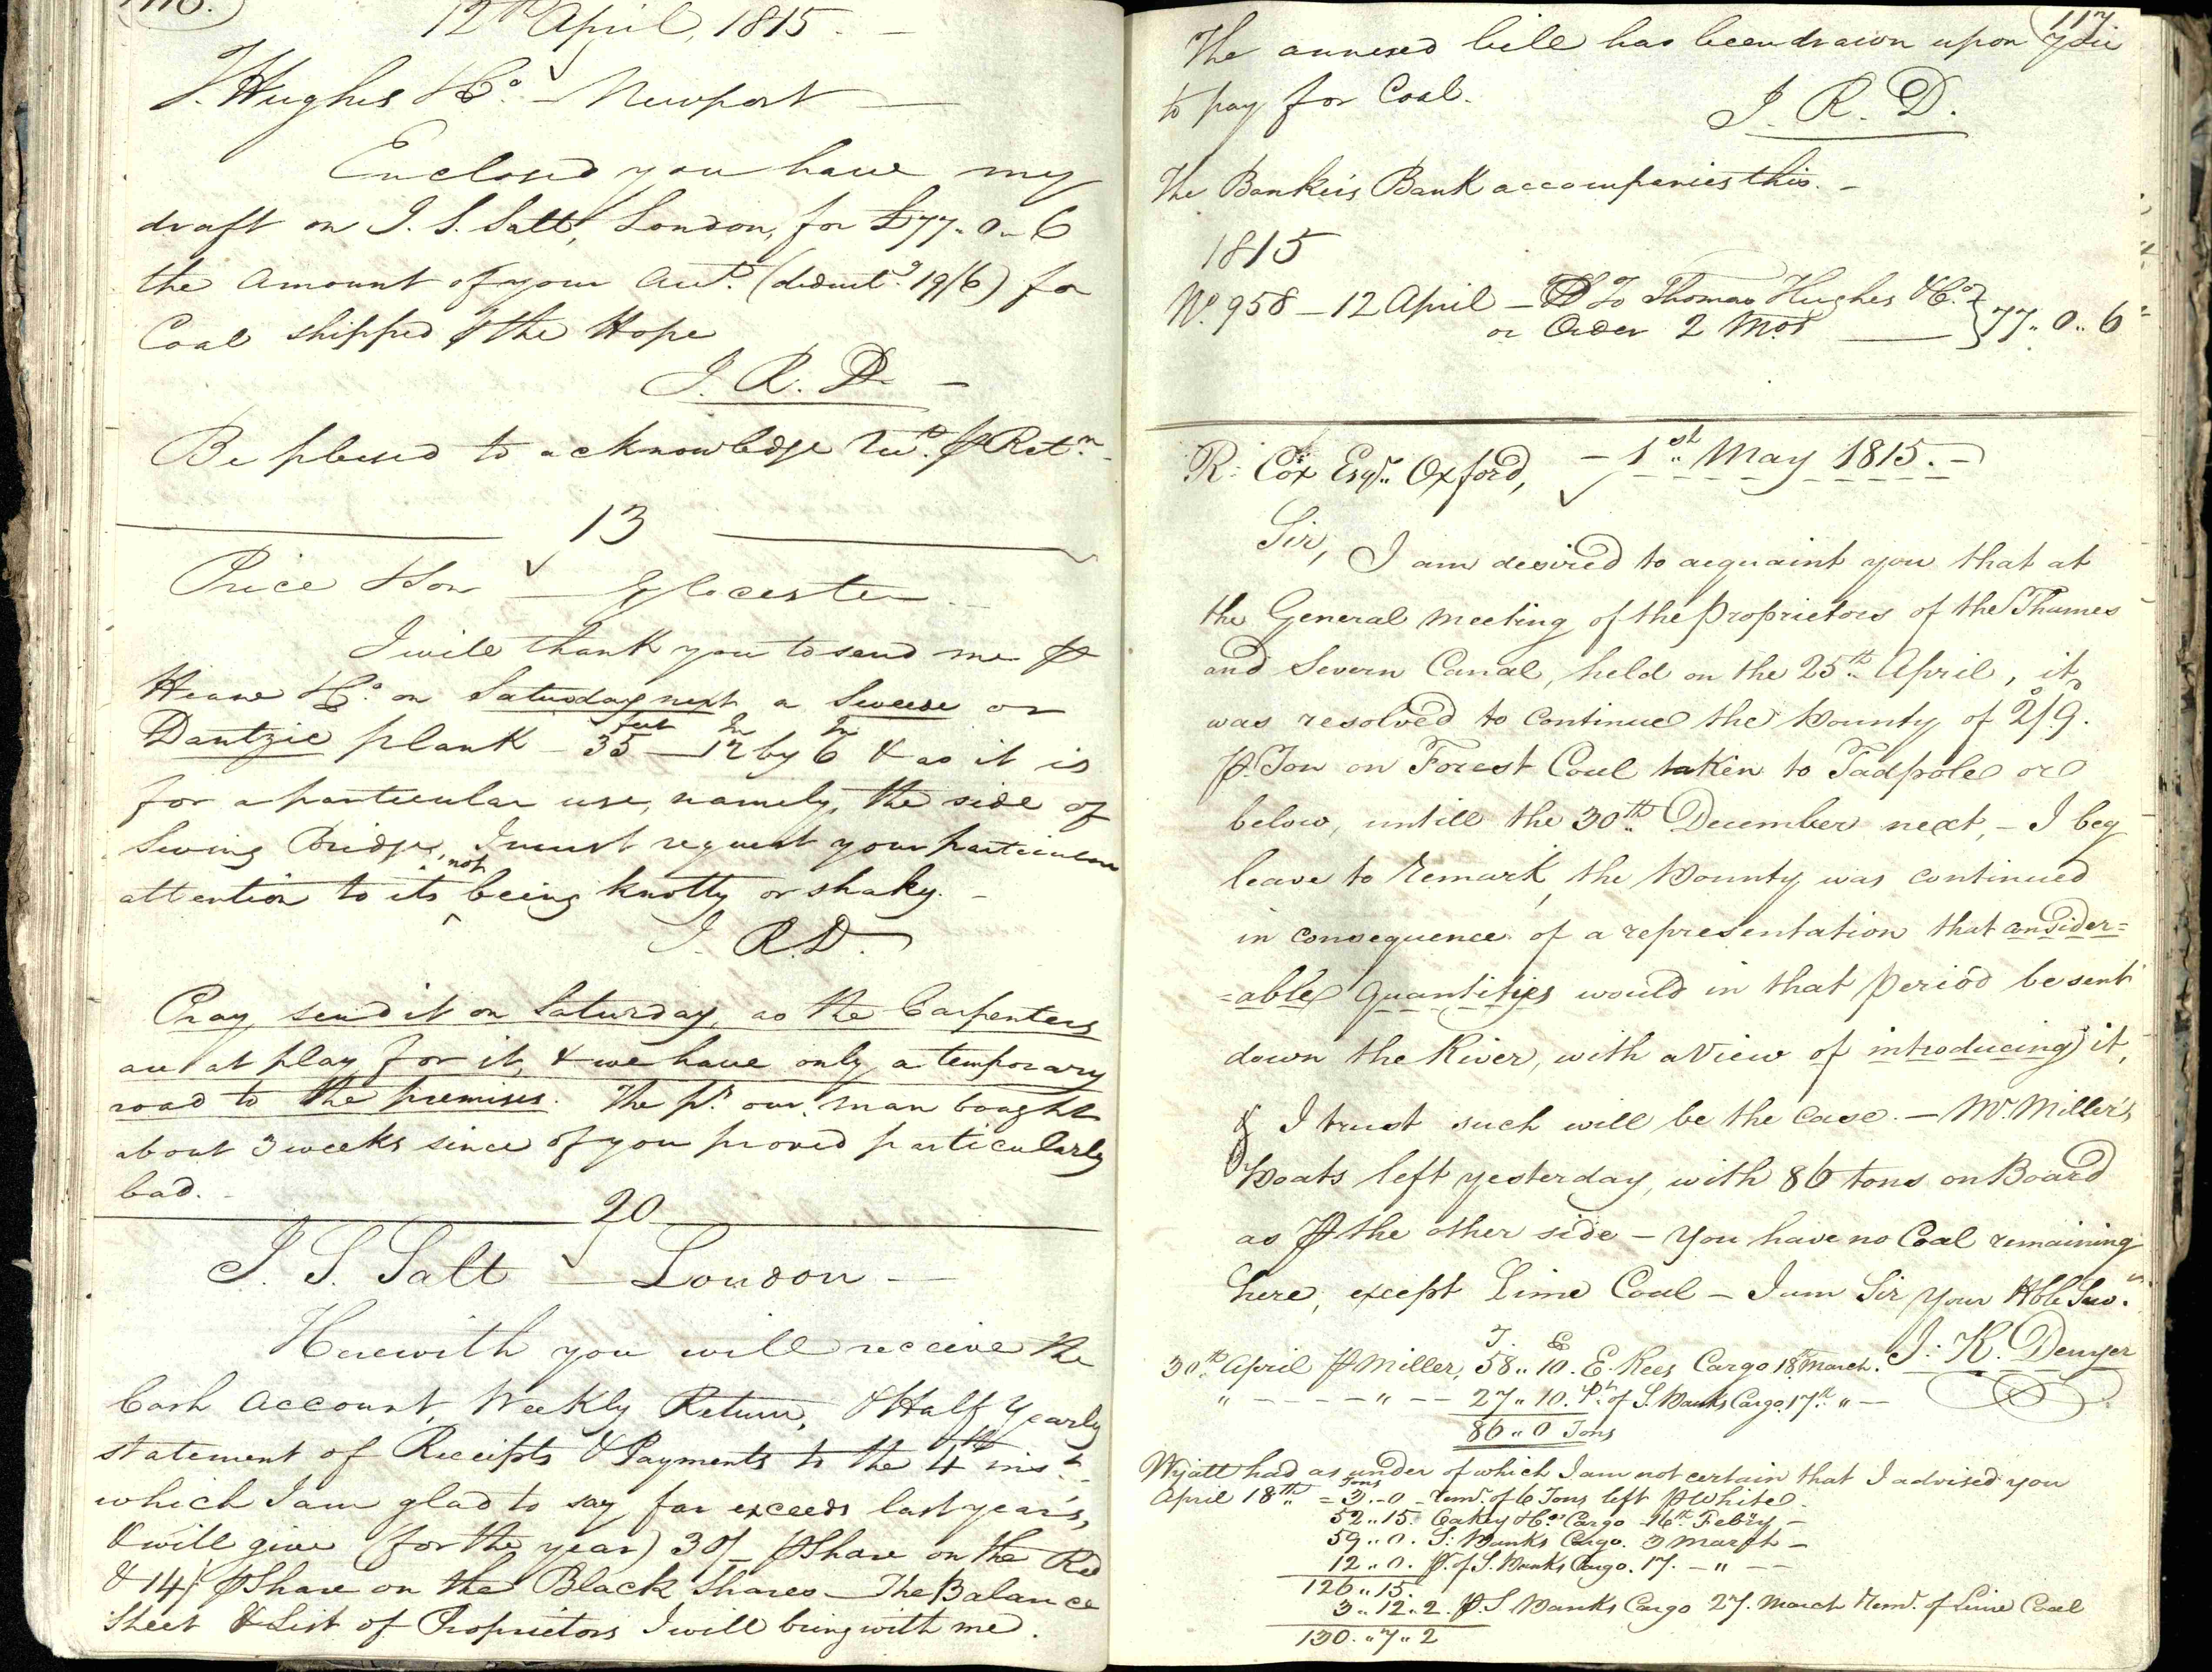 116.
12th April, 1815. —
T. Hughes & Co. — Newport —
Enclosed you have my
draft on J. S. Salt, London, for £77.. 0.. 6
the amount of your Acct. (deductg. 19/6) for
Coal shipped ⅌ the Hope
J. R. D —
Be pleased to acknowledge rect. ⅌ Retn.
13
Price & Son — Glocester —
I will thank you to send me ⅌
Heane & Co. on Saturday next a Sweede or
feet In In
Dantzic plank — 35 — 12 by 6 & as it is
for a particular use, namely, the side of
Swing Bridge, I must request your particular
not
attention to its ^ being knotty or shaky. —
J. R. D.
Pray send it on Saturday, as the Carpenters
are at play for it, & we have only a temporary
road to the premises. The ps. our man bought
about 3 weeks since of you proved particularly
bad. —
20
J. S. Salt — London —
Herewith you will receive the
Cash Account, Weekly Return, & Half Yearly
statement of Receipts & Payments to the 4th inst.
which I am glad to say far exceeds last year's,
& will give (for the year) 30/— ⅌ Share on the Red
& 14/ ⅌ Share on the Black Shares — The Balance
Sheet & List of Proprietors I will bring with me.
117.
The annexed bill has been drawn upon you
to pay for Coal.
J. R. D.
The Banker's Bank accompanies this. —
1815
No. 958 — 12 April — To Thomas Hughes & Co. } 77.. 0.. 6
or Order 2 Mos —
R. Cox Esqr. Oxford, — 1st. May 1815. —
Sir, I am desired to acquaint you that at
the General Meeting of the Proprietors of the Thames
and Severn Canal, held on the 25th. April, it
was resolved to continue the bounty of 2/9.
⅌ Ton on Forest Coal taken to Tadpole or
below, untill the 30th. December next, — I beg
leave to remark, the bounty was continued
in consequence of a representation that consider=
=able Quantities would in that period be sent
down the River, with a View of introducing it,
& I trust such will be the case. — Mr. Miller's
Boats left yesterday, with 86 tons on Board
as ⅌ the other side — You have no Coal remaining
here, except Lime Coal — I am Sir Your Hble Servt.
T. C
30th. April ⅌ Miller, 58.. 10. E. Rees Cargo 18th March. J. R. Denyer
" — — — — " — — 27.. 10. Pt. of S. Banks Cargo. 17th. " —
86.. 0 Tons
Wyatt had as under of which I am not certain that I advised you
Tons
April 18th. = 3.. 0 — remr. of 6 Tons left ⅌ White.
52.. 15. Oakey & Co. Cargo 16th. Febry —
59.. 0. S. Banks Cargo. 3 March —
12.. 0. Pt. of S. Banks Cargo. 17. — " —
126.. 15.
3.. 12.. 2. ⅌ S Banks Cargo 27. March remr. of Lime Coal
130.. 7.. 2